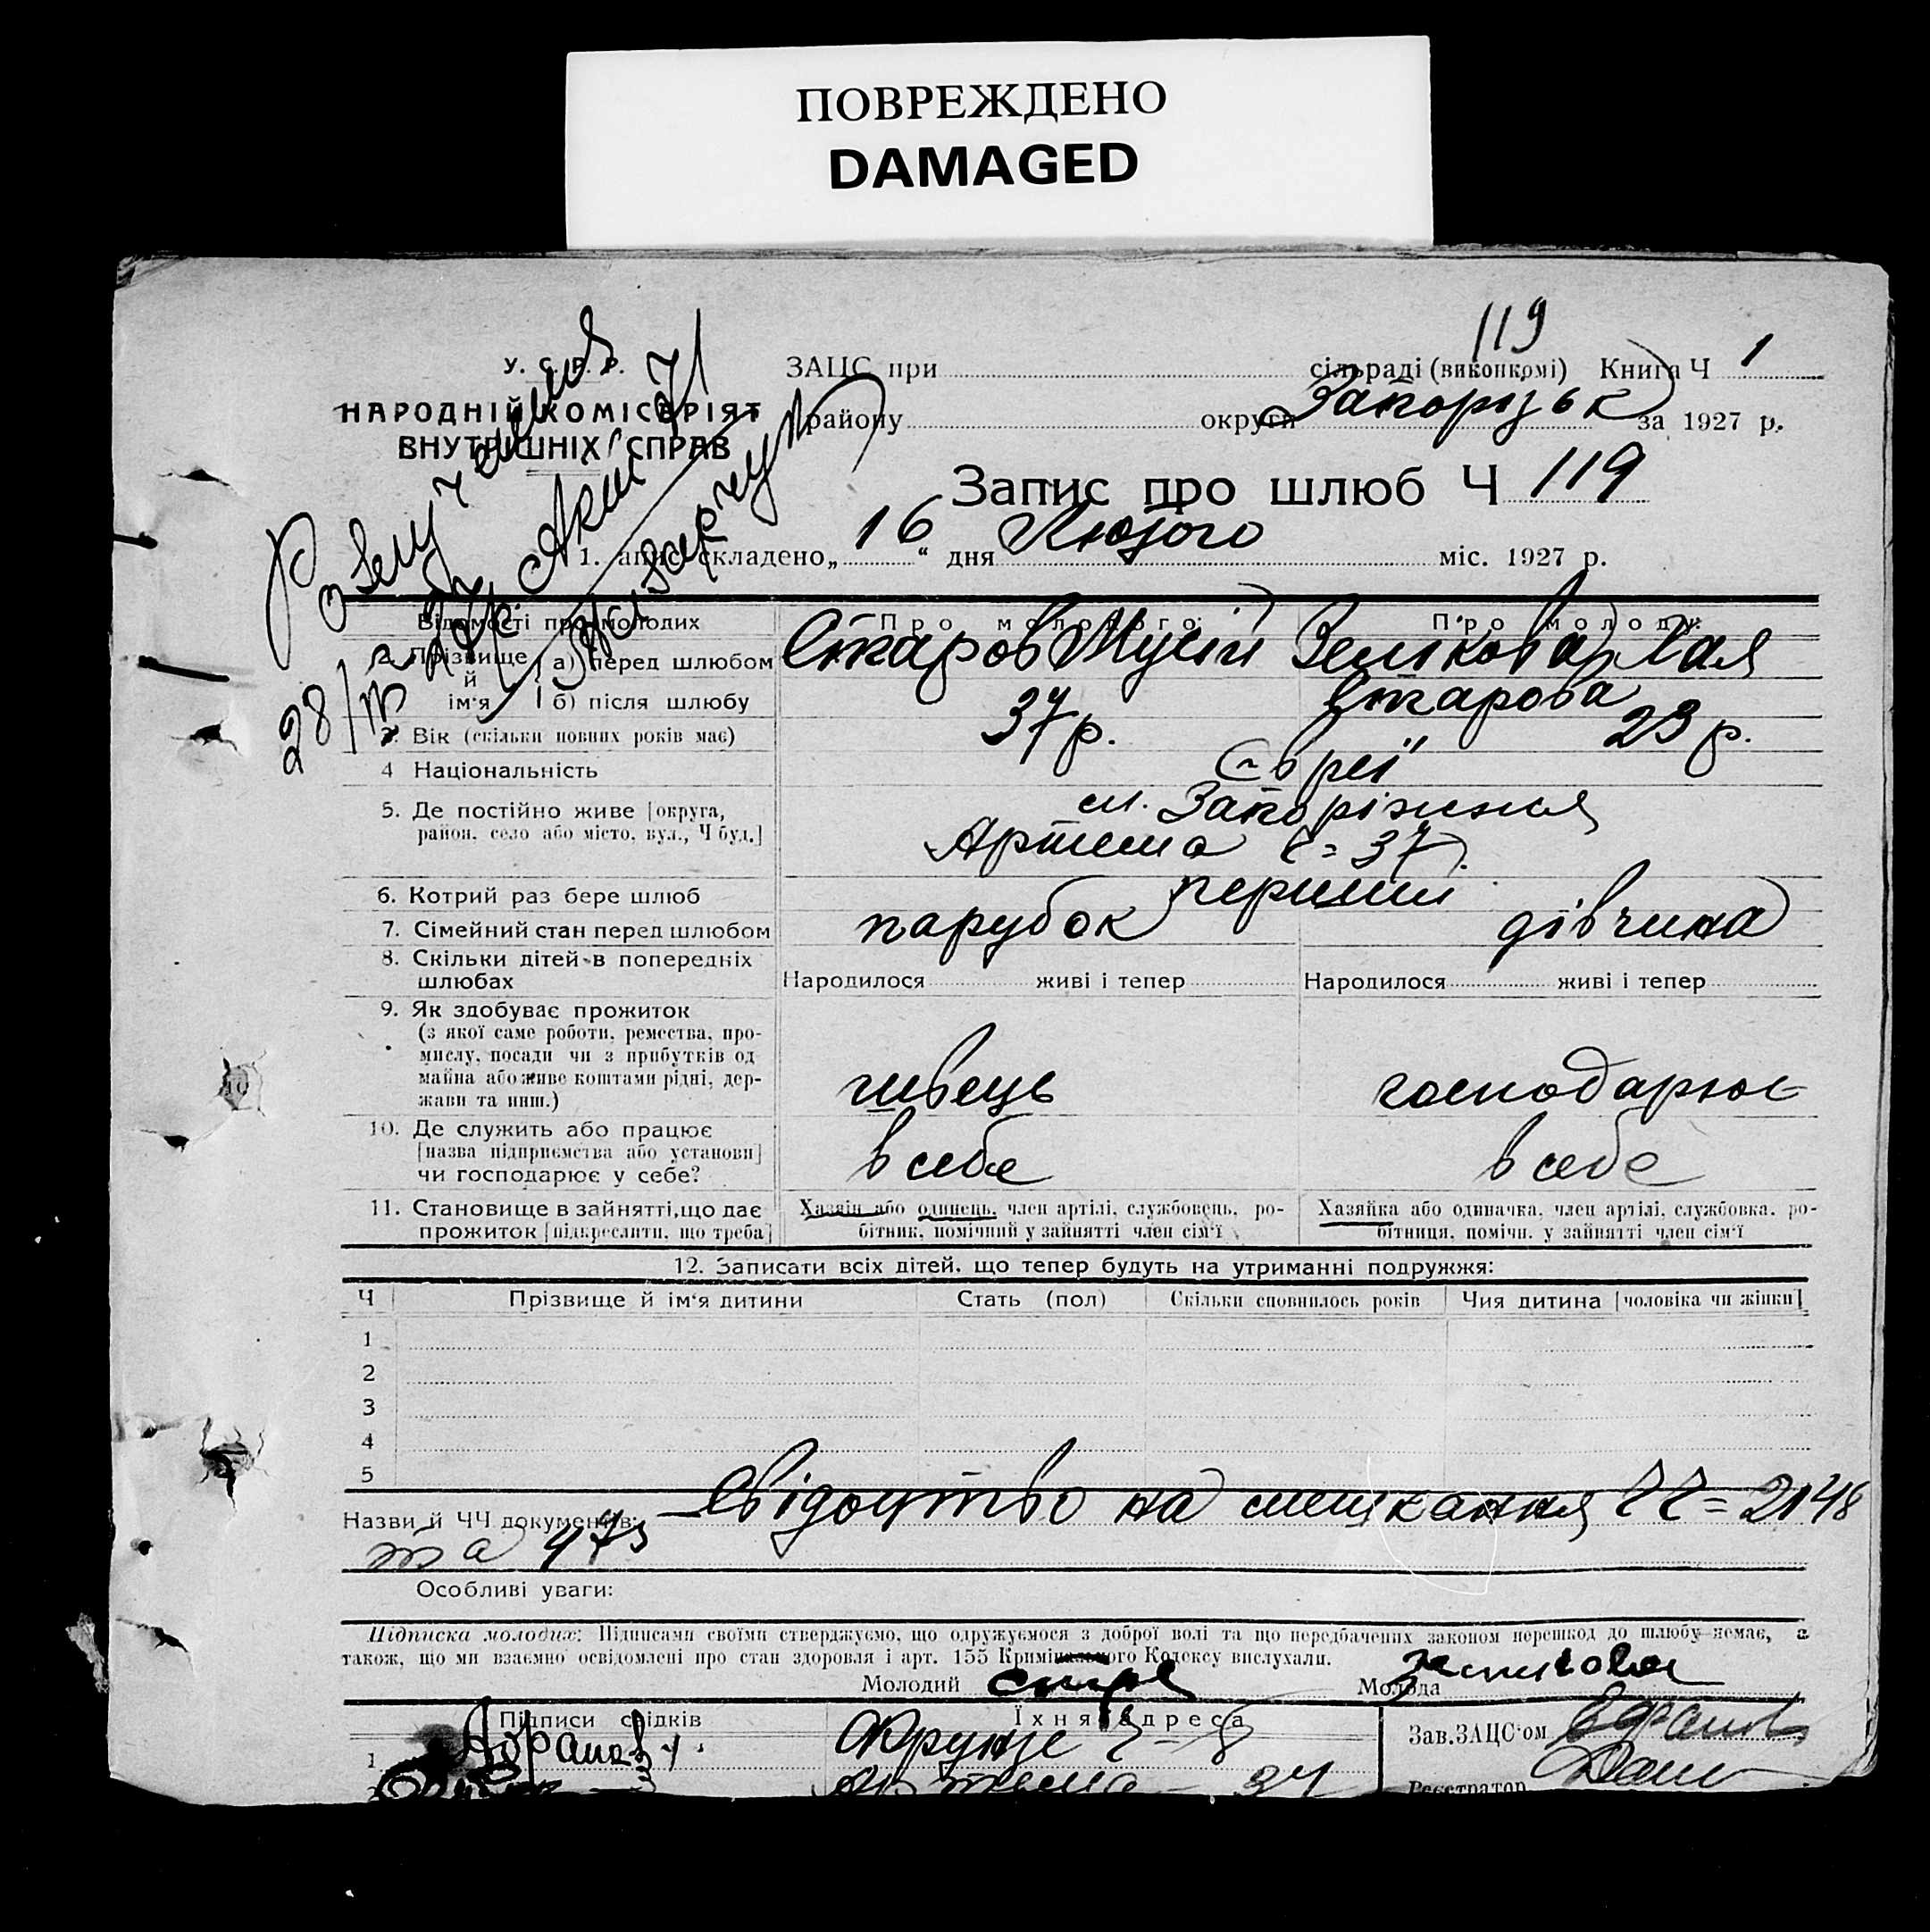 ПОВРЕЖДЕНО
DAMAGED
119
У. С. Р. Р.
НАРОДНІЙ КОМІСАРІЯТ
ВНУТРІШНІХ СПРАВ
ЗАЦС при сільраді (виконкомі) Книга Ч 1
району округи Запорізьк за 1927 р.
Запис про шлюб Ч 119
1. апис складено „ 16 “ дня Лютого міс. 1927 р.
Розлучення
28/III 27 р. Акт 71
Відомості про молодих Про молодого: Про молоду:
2. Прізвище й ім'я а) перед шлюбом Старов Мусій Зелікова Хая
б) після шлюбу Старова
3. Вік (скільки повних років має) 37 р. 23 р.
4 Національність Євреї
5. Де постійно живе [округа, м. Запоріжжя
район, село або місто, вул., Ч буд.] Артема Ч= 37.
6. Котрий раз бере шлюб перший
7. Сімейний стан перед шлюбом парубок дівчина
8. Скільки дітей в попередніх
шлюбах Народилося живі і тепер Народилося живі і тепер
9. Як здобуває прожиток
(з якої саме роботи, ремества, про-
мислу, посади чи з прибутків од
майна або живе коштами рідні, дер- швець господарює
жави та инш.)
10. Де служить або працює
[назва підприємства або установи] в себе в себе
чи господарює у себе?
11. Становище в зайнятті, що дає Хазяїн або одинець, член артілі, службовець, ро- Хазяйка або одиначка, член артілі, службовка, ро-
прожиток [підкреслити, що треба] бітник, помічний у зайнятті член сім'ї бітниця, помічн. у зайнятті член сім'ї
12. Записати всіх дітей, що тепер будуть на утриманні подружжя:
Ч Прізвище й ім'я дитини Стать (пол) Скільки сповнилось років Чия дитина [чоловіка чи жінки]
1
2
3
4
5
Назви й ЧЧ документів: Свідоцтво на мешкання ЧЧ= 2148
та 473
Особливі уваги:
Підписка молодих: Підписами своїми стверджуємо, що одружуємося з доброї волі та що передбачених законом перешкод до шлюбу немає, а
також, що ми взаємно освідомлені про стан здоровля і арт. 155 Кримінального Кодексу вислухали.
Молодий Молода Зеликова
Підписи свідків Їхня адреса Зав. ЗАЦС'ом
1 Фрунзе Ч-8
Артема - 37 Реєстратор